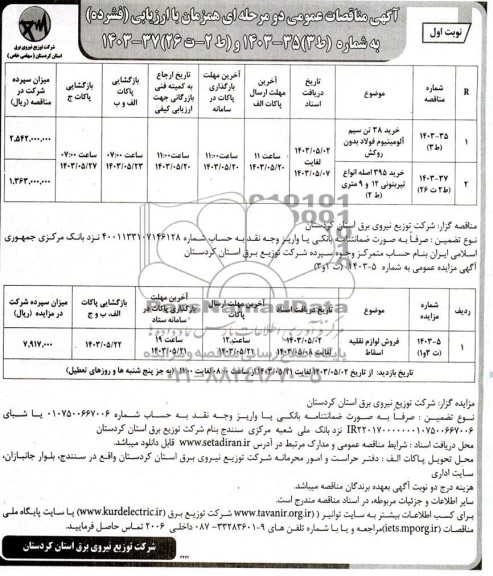 نوبت اول
آگهی مناقصات عمومی دو مرحله ای همزمان با ارزیابی (فشرده)
به شماره (ط۳)۳۵-۱۴۰۳ و (ط ۲-ت ۲۶)۳۷-۱۴۰۳
شرکت توزیع نیروی برق
استان کردستان (سهامی خاص)
R
شماره مناقصه
موضوع
تاریخ دریافت اسناد
آخرین مهلت ارسال پاکات الف
آخرین مهلت بارگذاری پاکات در سامانه
تاریخ ارجاع به کمیته فنی بازرگانی جهت ارزیابی کیفی
بازگشایی پاکات الف و ب
بازگشایی پاکات ج
میزان سپرده شرکت در مناقصه (ریال)
۱
۱۴۰۳-۳۵ (ط۳)
خرید ۳۸ تن سیم آلومینیوم فولاد بدون روکش
۱۴۰۳/۰۵/۰۲ لغایت ۱۴۰۳/۰۵/۰۷
ساعت ۱۱ ۱۴۰۳/۰۵/۲۰
ساعت ۱۱:۰۰ ۱۴۰۳/۰۵/۲۰
ساعت ۱۱:۰۰ ۱۴۰۳/۰۵/۲۰
ساعت ۰۷:۰۰ ۱۴۰۳/۰۵/۲۳
ساعت ۰۷:۰۰ ۱۴۰۳/۰۵/۲۷
۲,۵۴۲,۰۰۰,۰۰۰
۲
۱۴۰۳-۳۷ (ط۲ ت ۲۶)
خرید ۳۹۵ اصله انواع تیربتونی ۱۲ و ۹ متری (ط ۲)
۱,۳۶۳,۰۰۰,۰۰۰
مناقصه گزار: شرکت توزیع نیروی برق استان کردستان
نوع تضمین : صرفاً به صورت ضمانتنامه بانکی یا واریز وجه نقد به حساب شماره ۴۰۰۱۱۳۳۱۰۷۱۴۶۱۲۸ نزد بانک مرکزی جمهوری
اسلامی ایران بنام حساب متمرکز وجوه سپرده شرکت توزیع برق استان کردستان
آگهی مزایده عمومی به شماره ۵-۱۴۰۳
ردیف
شماره مزایده
موضوع
تاریخ دریافت اسناد
آخرین مهلت ارسال پاکات
آخرین مهلت بارگذاری پاکات در سامانه ستاد
بازگشایی پاکات الف، ب و ج
میزان سپرده شرکت در مزایده (ریال)
۱
۱۴۰۳-۵ (ت ۳و۱)
فروش لوازم نقلیه اسقاط
۱۴۰۳/۰۵/۰۲ لغایت ۱۴۰۳/۰۵/۰۸
ساعت ۱۲ ۱۴۰۳/۰۵/۲۱
ساعت ۱۹ ۱۴۰۳/۰۵/۲۱
۱۴۰۳/۰۵/۲۲
۷,۹۱۷,۰۰۰
تاریخ بازدید: از تاریخ ۱۴۰۳/۰۵/۰۲ لغایت ۱۴۰۳/۰۵/۲۱ از ساعت ۰۸:۰۰ لغایت ۱۱:۰۰ (به جز پنج شنبه ها و روزهای تعطیل)
مزایده گزار: شرکت توزیع نیروی برق استان کردستان
نوع تضمین : صرفاً به صورت ضمانتنامه بانکی یا واریز وجه نقد به حساب شماره ۰۱۰۷۵۰۰۶۶۷۰۰۶ یا شبای
نزد بانک ملی شعبه مرکزی سنندج بنام شرکت توزیع برق استان کردستان
محل دریافت اسناد : شرایط مناقصه عمومی و مدارک مرتبط در آدرس www.setadiran.ir قابل دانلود میباشد.
محل تحویل پاکات الف : دفتر حراست و امور محرمانه شرکت توزیع نیروی برق استان کردستان واقع در سنندج، بلوار جانبازان،
سایت اداری
هزینه درج دو نوبت آگهی بعهده برندگان مناقصه میباشد.
سایر اطلاعات و جزئیات مربوطه، در اسناد مناقصه مندرج است.
برای کسب اطلاعات بیشتر به سایت توانیر (www.tavanir.org.ir) شرکت توزیع برق (www.kurdelectric.ir) یا سایت پایگاه ملی
مناقصات (iets.mporg.ir) مراجعه و یا با شماره تلفن های ۹-۳۳۲۸۳۶۰۱-۰۸۷ داخلی ۲۰۰۶ تماس حاصل فرمایید.
شرکت توزیع نیروی برق استان کردستان